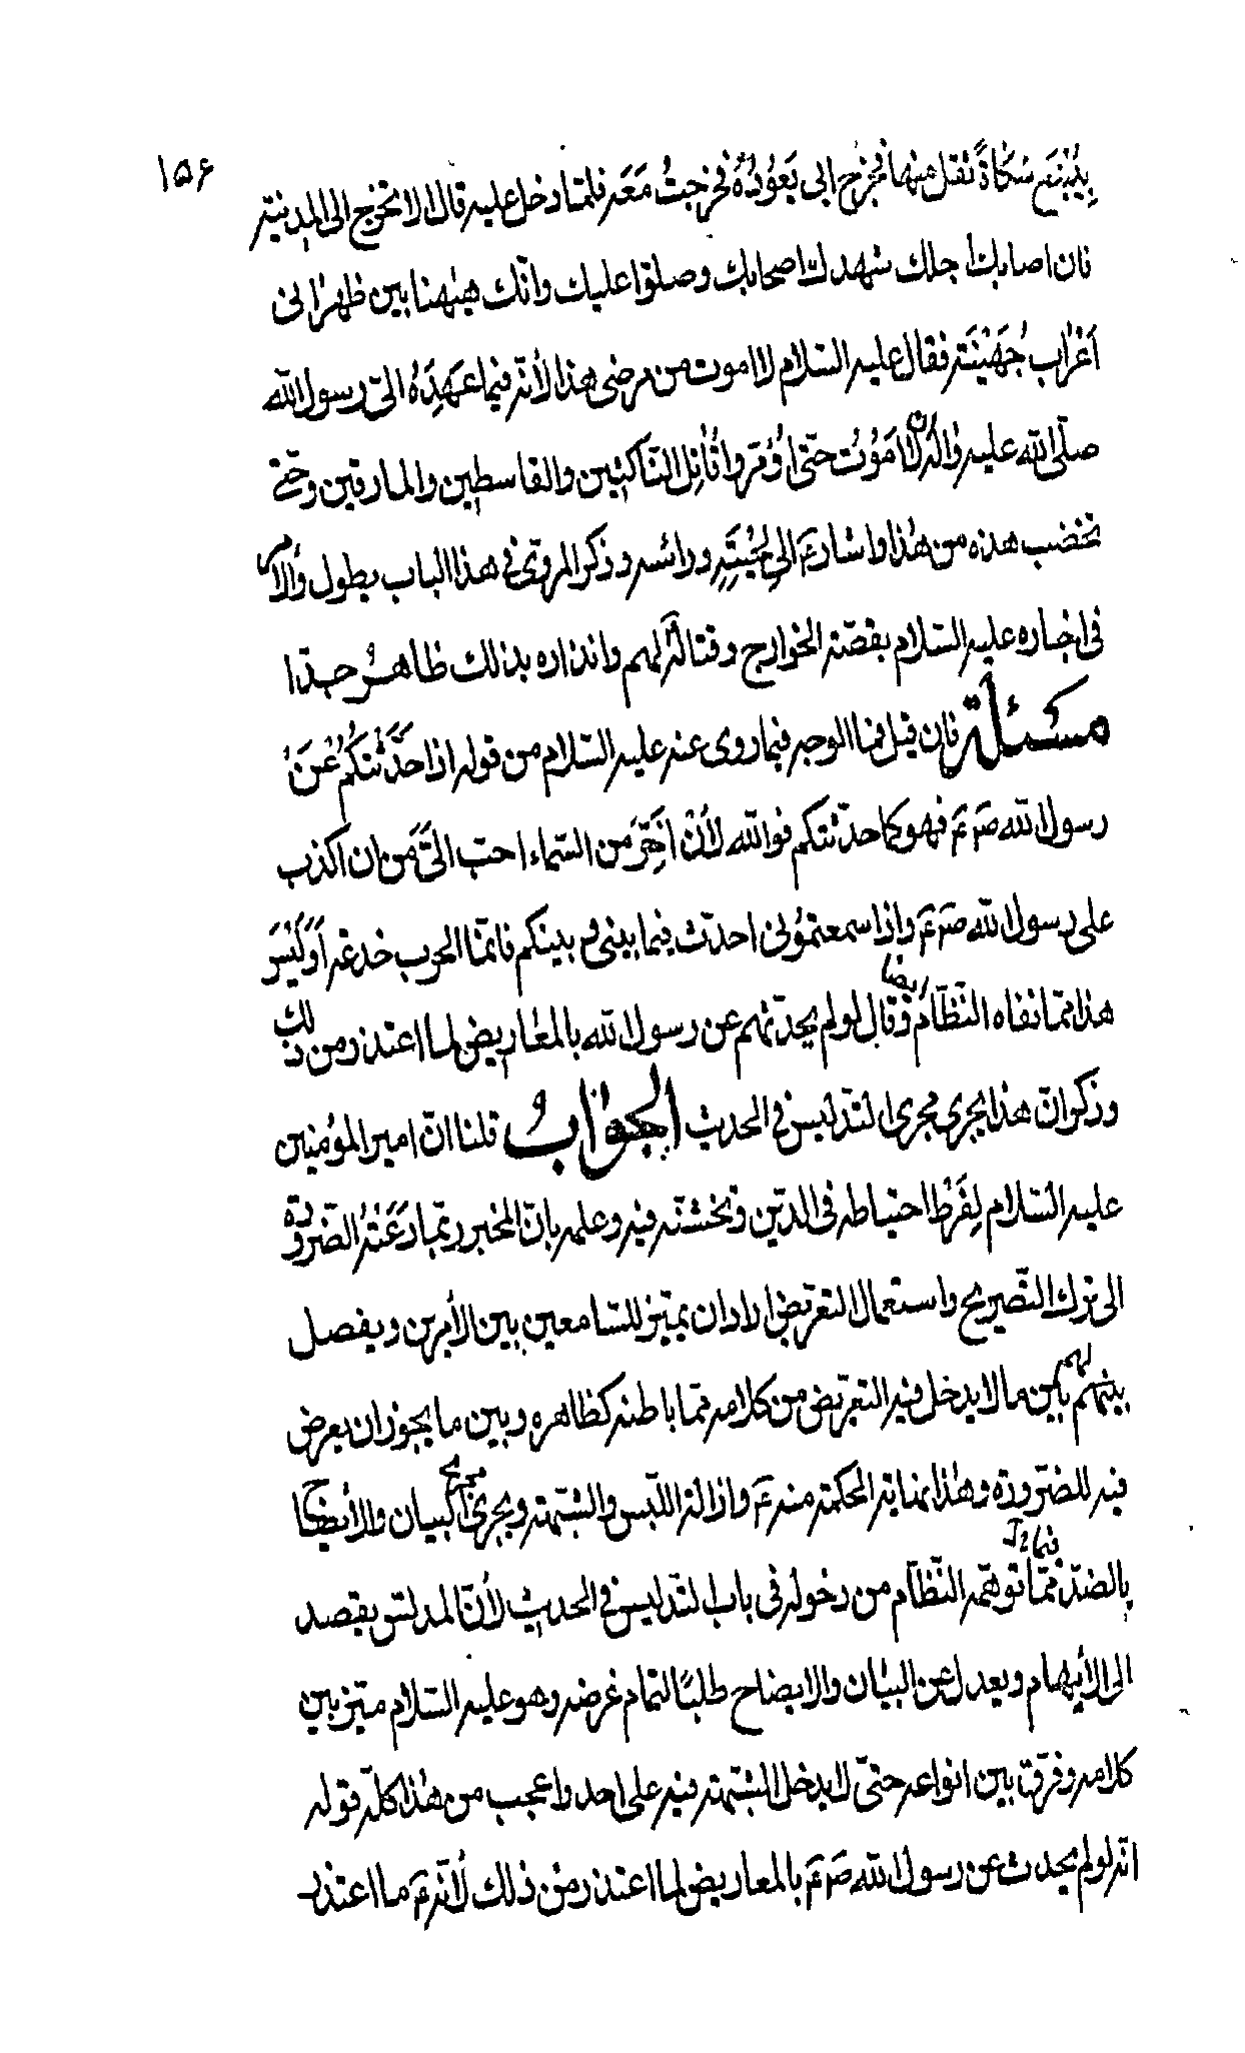 ۱۵۶
بِيَنْبَع شكاةً ثقل منها فخرج ابى يَعُودُهُ فخرجتُ مَعَه فلمّا دخل عليه قال الا تخرج الى المدينة
فان اصابك اجلك شهدك اصحابك وصلّوا عليك وانّك هيٰهنا بين ظهرٰانى
اَعْرٰاب جُهَيْنَة فقال عليه السّلام لا اموت من مرضى هذا لأنّه فيما عَهِدَهُ الىّ رسول اللّٰه
صلّى اللّه عليه وٰاله ان لا اَمُوْت حتّى اُوْمَر واُقٰاتِل النّاكثين والقاسطين والمارقين وحتّى
تخضب هذه من هٰذا واشار ع الى لِحْيَتِهِ ورائسه وذكر المروىّ فى هذا الباب يطول والأمر
فى اخباره عليه السّلام بقصّة الخوارج وقتاله لهم وانذاره بذلك ظاهرٌ جدّا
مسئلة فان قيل فما الوجه فيما روى عنه عليه السّلام من قوله اذا حَدَّثْتُكُم عَنْ
رسول اللّه ص ع فهو كما حدّثتكم فواللّه لأَنْ اَخِرَّ من السّماء احبّ الىَّ من ان اكذب
على رسول اللّه ص ع واذا سمعتمُونى احدّث فيما بينى و بينكم فانّما الحرب خدعة اَوَلَيْسَ
هذا ممّا نفاه النّظّام ايضا وقال لو لم يحدّثهم عن رسول اللّه بالمعاريض لما اعتذر من ذلك
وذكر انّ هذا يجرى مجرى التّدليس فى الحديث الجوٰابُ قلنا انّ امير المؤمنين
عليه السّلام لِفَرْط احتياطه فى الدّين وتخشّنه فيه وعلمه بانّ المخبر ربّما دَعَتْهُ الضّرورة
الى ترك التّصريح واستعمال التعريض اراد ان يميّز للسّامعين بين الأمرين ويفصل
لهم بين ما لا يدخل فيه التعريض من كلامه ممّا باطنه كظاهره وبين ما يجوز ان يعرض
فيه للضرورة وهٰذا نهاية الحكمة منه ع وازالة اللّبس والشّبهة ويجرى مجرى البيان والأيضاح
بالضدّ فيما توهّمه النّظّام من دخوله فى باب التّدليس فى الحديث لأنّ المدلّس يقصد
الى الأبهام ويعدل عن البيٰان والايضاح طلبًا لتمام غرضه وهو عليه السّلام ميّز بين
كلامه وفرّق بين انواعه حتّى لا يدخل الشّبهة فيه على احد واعجب من هٰذا كلّه قوله
انّه لو لم يحدث عن رسول اللّه ص ع بالمعاريض لما اعتذر من ذلك لأنّه ع ما اعتذر